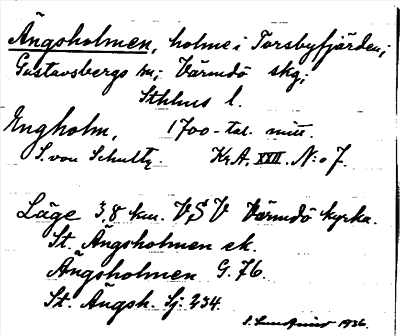 Ängsholmen, holme i Torsbyfjärden;
Gustavsbergs sn; Värmdö skg;
Sthlms l.
Engholm, 1700-tal. mitt.
S. von Schultz. Kr.A. XXII. N:o 7.
Läge 3,8 km. VSV Värmdö kyrka.
St. Ängsholmen ek.
Ängsholmen G. 76.
St. Ängsh. Sj. 234.
1936.